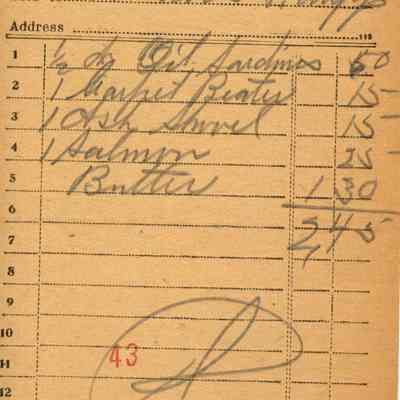 Address 191
1 ½ dz Oil Sardines 60
2 1 Carpet Beater 15
3 1 Ash Shovel 15
4 1 Salmon 25
5 Butter 1 30
6
7 2 45
8
9
10
11 43
12